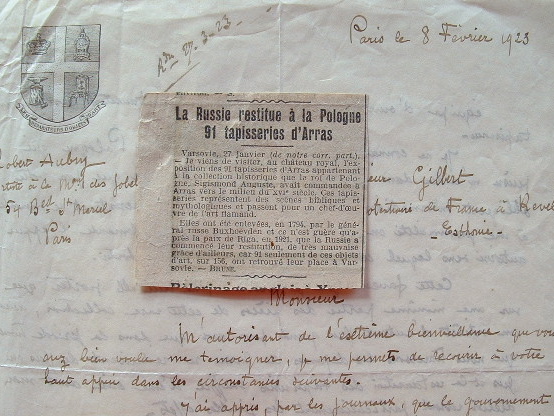 Paris le 8 Février 1923
Rdu 27.3-23
La Russie restitue à la Pologne
91 tapisseries d'Arras
Varsovie, 27 janvier (de notre corr. part.).
— Je viens de visiter, au château royal, l'ex-
position des 91 tapisseries d'Arras appartenant
à la collection historique que le roi de Polo-
gne, Sigismond Auguste, avait commandée à
Arras vers le milieu du XVIe siècle. Ces tapis-
series représentent des scènes bibliques et
mythologiques et passent pour un chef-d'œu-
vre de l'art flamand.
Elles ont été enlevées, en 1794, par le géné-
ral russe Buxhoevden et ce n'est guère qu'a-
près la paix de Riga, en 1921, que la Russie a
commencé leur restitution, de très mauvaise
grâce d'ailleurs, car 91 seulement de ces objets
d'art, sur 156, ont retrouvé leur place à Var-
sovie. — BRUNE.
Robert Aubry
à la Mre des Gobel
54 Bed St Marcel
Paris
ieur Gilbert
de France à Revel
Esthonie
Monsieur
M'autorisant de l'extrême bienveillance que vou
avez bien voulu me temoigner, je me permets de recourir à votre
haut appui dans les circonstances suivantes.
J'ai appris, par les journaux, que le gouvernement